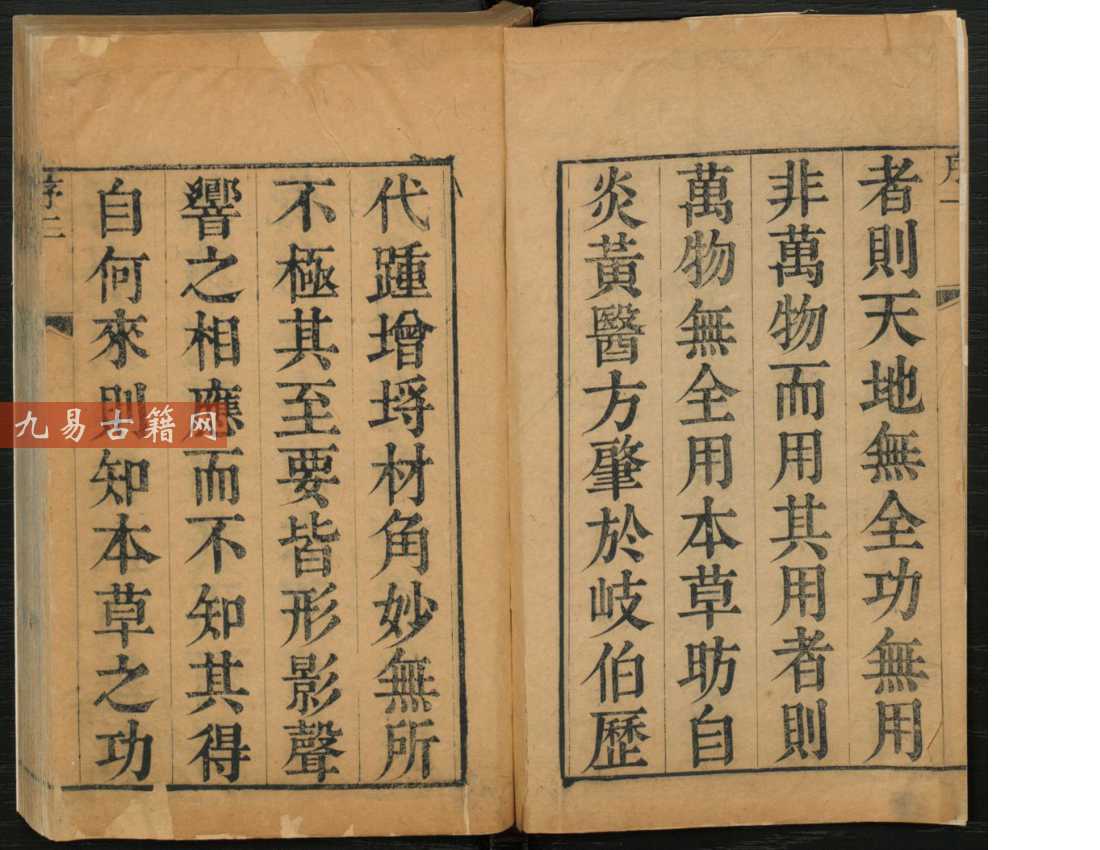 序一
者則天地無全功無用
非萬物而用其用者則
萬物無全用本草昉自
炎黃醫方肇於岐伯歷
代踵增埒材角妙無所
不極其至要皆形影聲
響之相應而不知其得
自何來則知本草之功
序二
九易古籍网